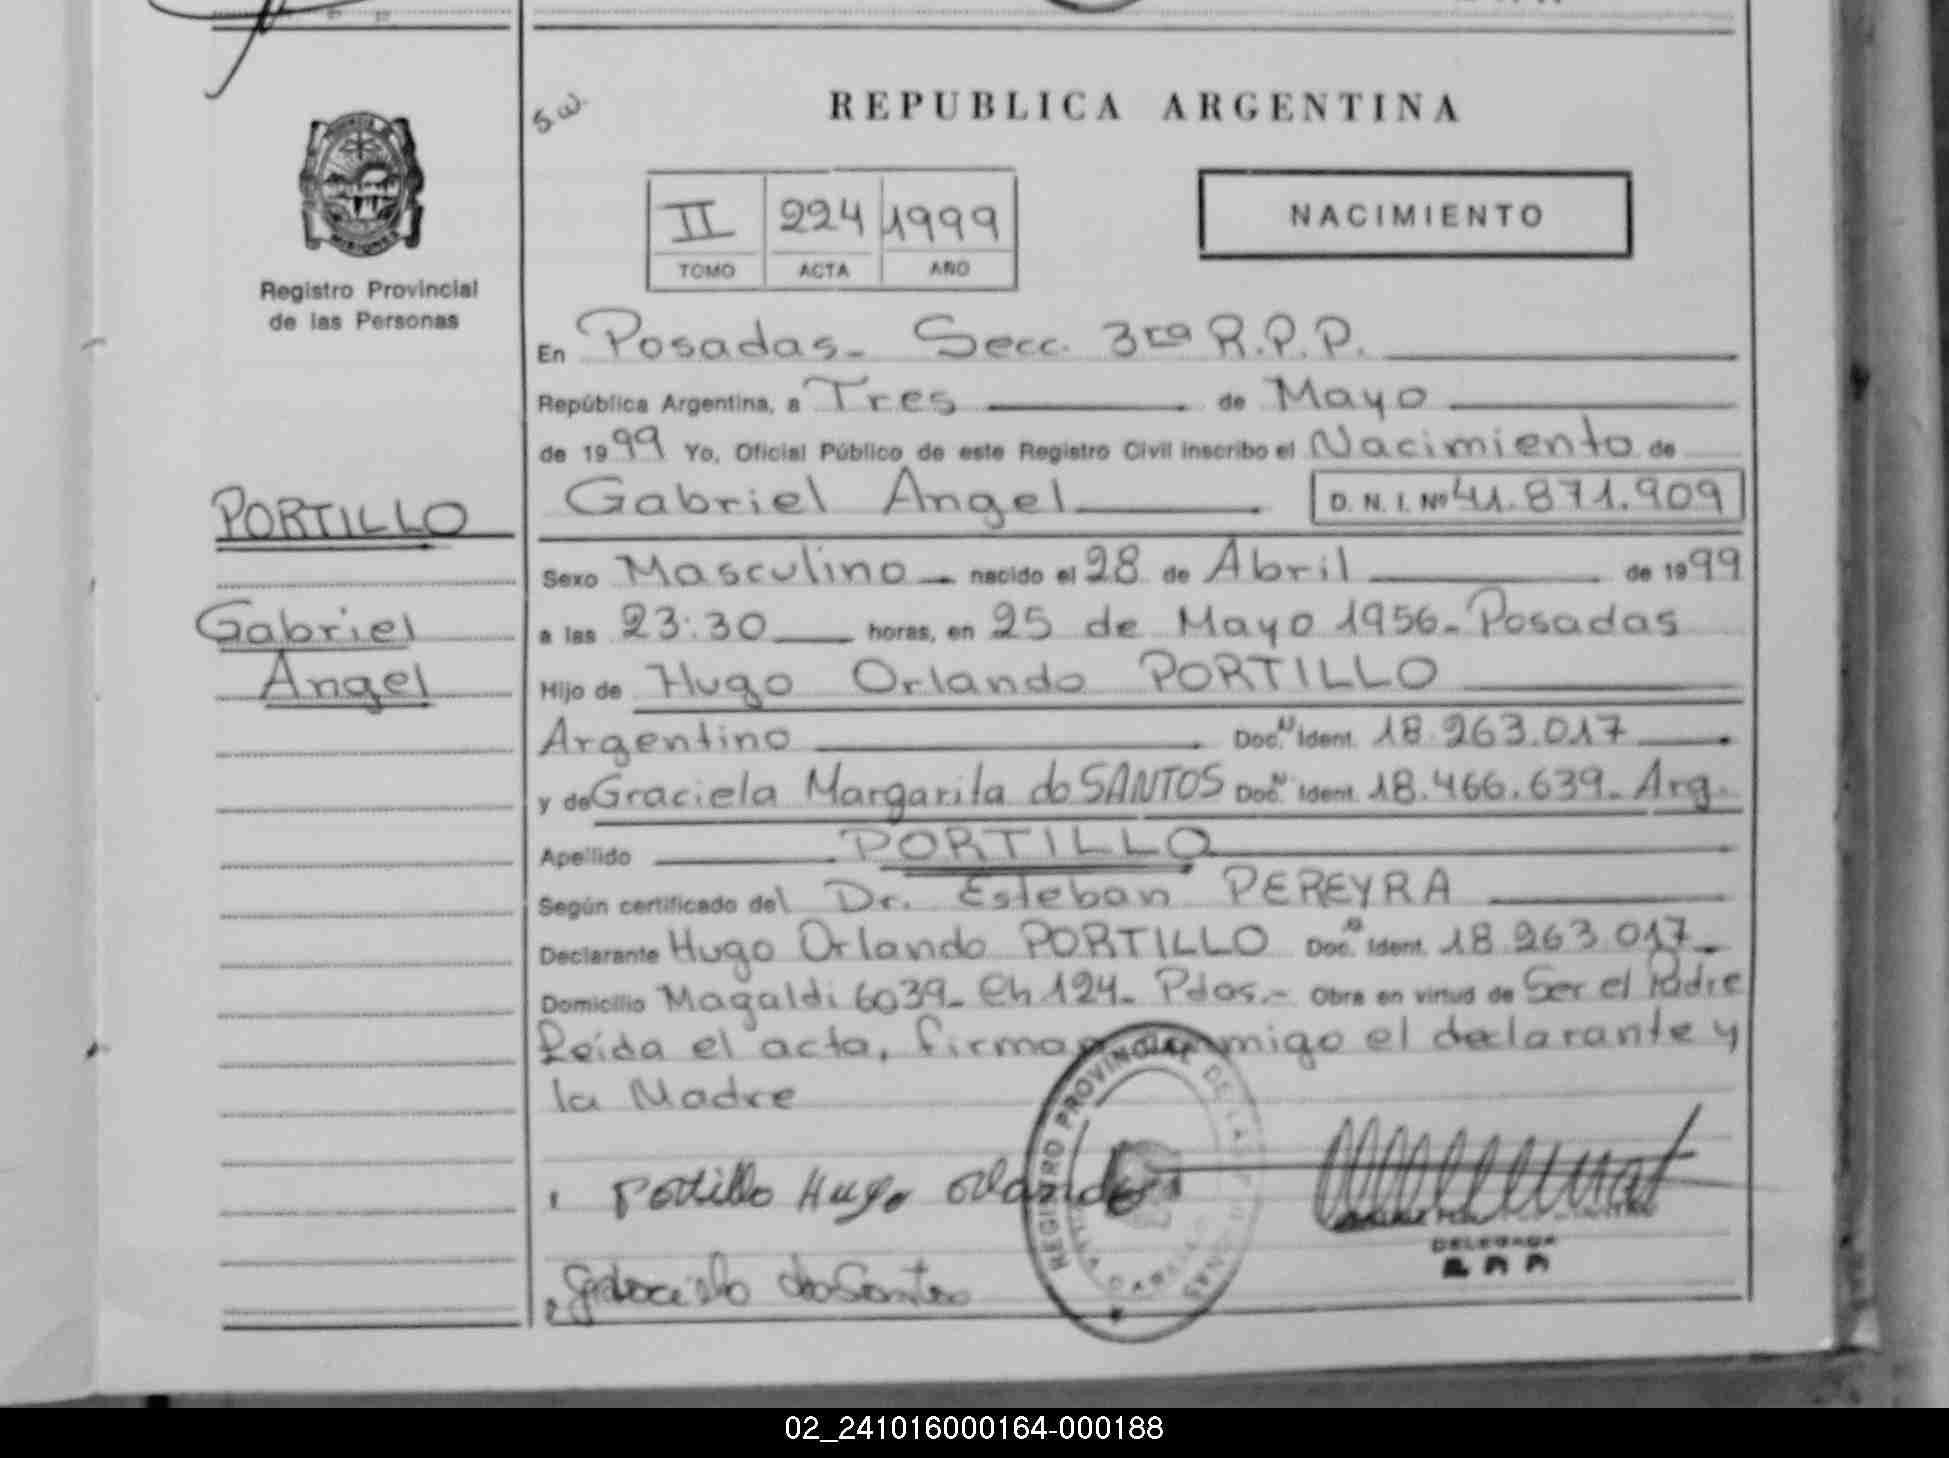 S.W.
REPUBLICA ARGENTINA
II 224 1999
TOMO ACTA AÑO
NACIMIENTO
Registro Provincial
de las Personas
En Posadas - Secc. 3ra R.P.P.
República Argentina, a Tres de Mayo
de 1999 Yo, Oficial Público de este Registro Civil inscribo el Nacimiento de
Gabriel Angel D. N. I. Nº 41.871.909
PORTILLO
Gabriel
Angel
Sexo Masculino nacido el 28 de Abril de 1999
a las 23:30 horas, en 25 de Mayo 1956 - Posadas
Hijo de Hugo Orlando PORTILLO
Argentino Doc. Ident. 18.263.017
y de Graciela Margarita do SANTOS Doc. Ident. 18.466.639 - Arg.
Apellido PORTILLO
Según certificado del Dr. Esteban PEREYRA
Declarante Hugo Orlando PORTILLO Doc. Ident. 18.263.017 -
Domicilio Magaldi 6039 - Ch 124 - Pdas. - Obra en virtud de Ser el Padre
Leída el acta, firman conmigo el declarante y
la Madre
Portillo Hugo Orlando
REGISTRO PROVINCIAL DE LAS
DELEGADA
02_241016000164-000188